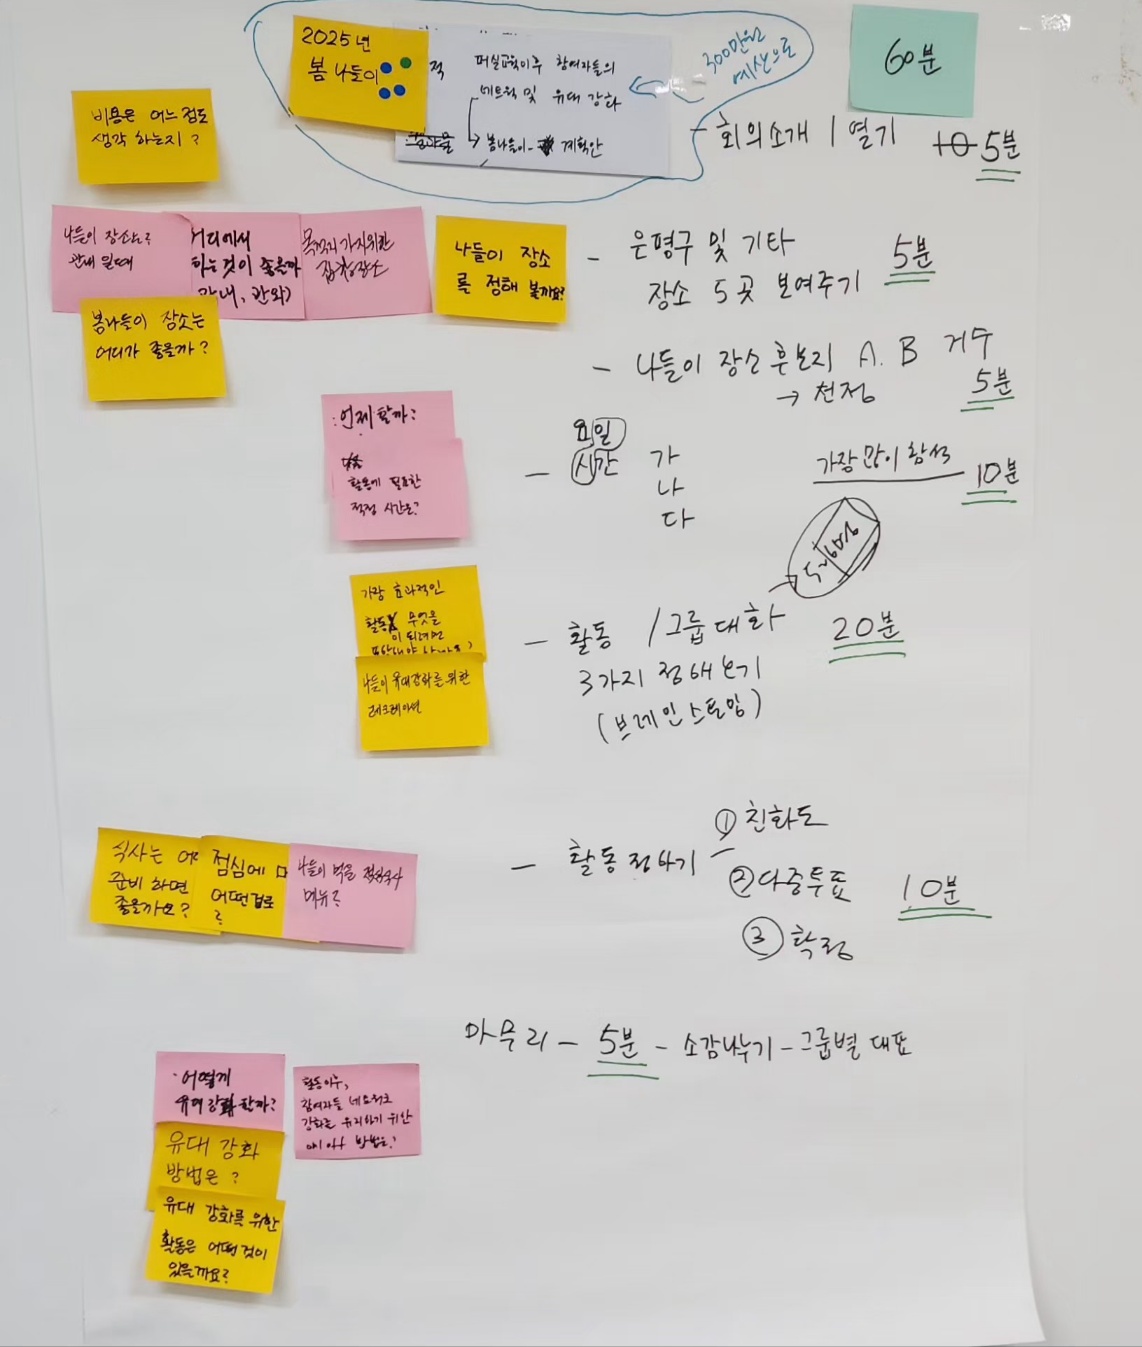 2025년
봄 나들이
적 퍼실교육이후 참여자들의
네트웍 및 유대 강화
봄나들이 - 계획안
300만원
예산으로
60분
비용은 어느 정도
생각 하는지?
- 회의소개 / 열기 10 5분
나들이 장소는?
관내 일때
어디에서
하는것이 좋을까
관내, 관외)
목적지 가기위한
집합장소
나들이 장소
를 정해 볼까요?
- 은평구 및 기타
장소 5곳 보여주기
5분
봄나들이 장소는
어디가 좋을까?
- 나들이 장소 후보지 A. B 거수
→ 선정
5분
언제 할까?
활동에 필요한
적정 시간은?
- 요일
시간 가
나
다
가장 많이 참석
10분
가장 효과적인
활동 무엇을
이 되려면
나들이 유대강화를 위한
레크레이션
- 활동 / 그룹대화
3가지 정해보기
(브레인스토밍)
5~6명
20분
식사는
준비 하면
좋을까요?
점심에
어떤걸로
?
나들이 먹을 점심식사
메뉴?
- 활동 정하기
① 친화도
② 다중투표
③ 확정
10분
마무리 - 5분 - 소감나누기 - 그룹별 대표
어떻게
유대 강화 할까?
활동이후,
참여자들 네트워크
강화를 유지하기 위한
방법은?
유대 강화
방법은?
유대 강화를 위한
활동은 어떤것이
있을까요?